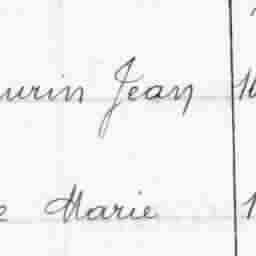 urin Jean
e Marie